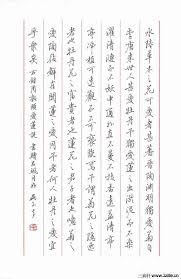 水陆草木之花可爱者甚蕃晋陶渊明独爱菊自
李唐来世人甚爱牡丹予独爱莲之出淤泥而不染
濯清涟而不妖中通外直不蔓不枝香远益清亭
亭净植可远观而不可亵玩焉予谓菊花之隐逸
者也牡丹花之富贵者也莲花之君子者也噫菊之
爱陶后鲜有闻莲之爱同予者何人牡丹之爱宜
乎众矣 周敦颐爱莲说